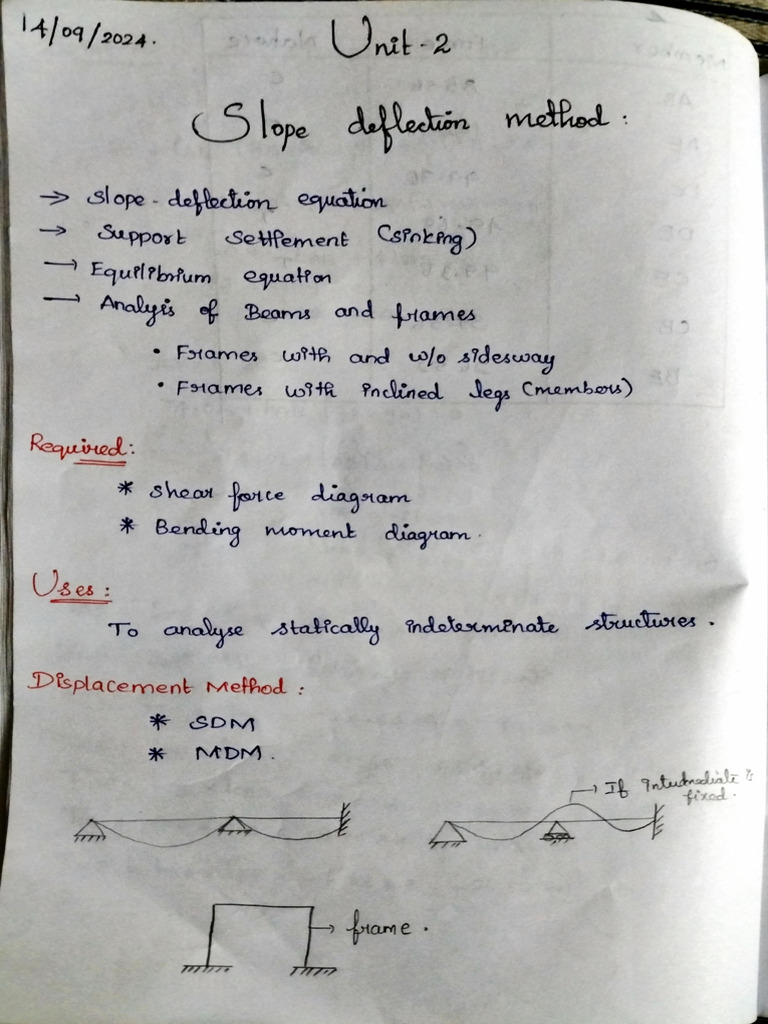 14/09/2024.
Unit - 2
Slope deflection method :
→ Slope-deflection equation
→ Support Settlement (sinking)
→ Equilibrium equation
→ Analysis of Beams and frames
• Frames with and w/o sidesway
• Frames with inclined legs (members)
Required:
* Shear force diagram
* Bending moment diagram.
Uses :
To analyse statically indeterminate structures.
Displacement Method :
* SDM
* MDM.
→ If Intermediate is
fixed.
→ frame.